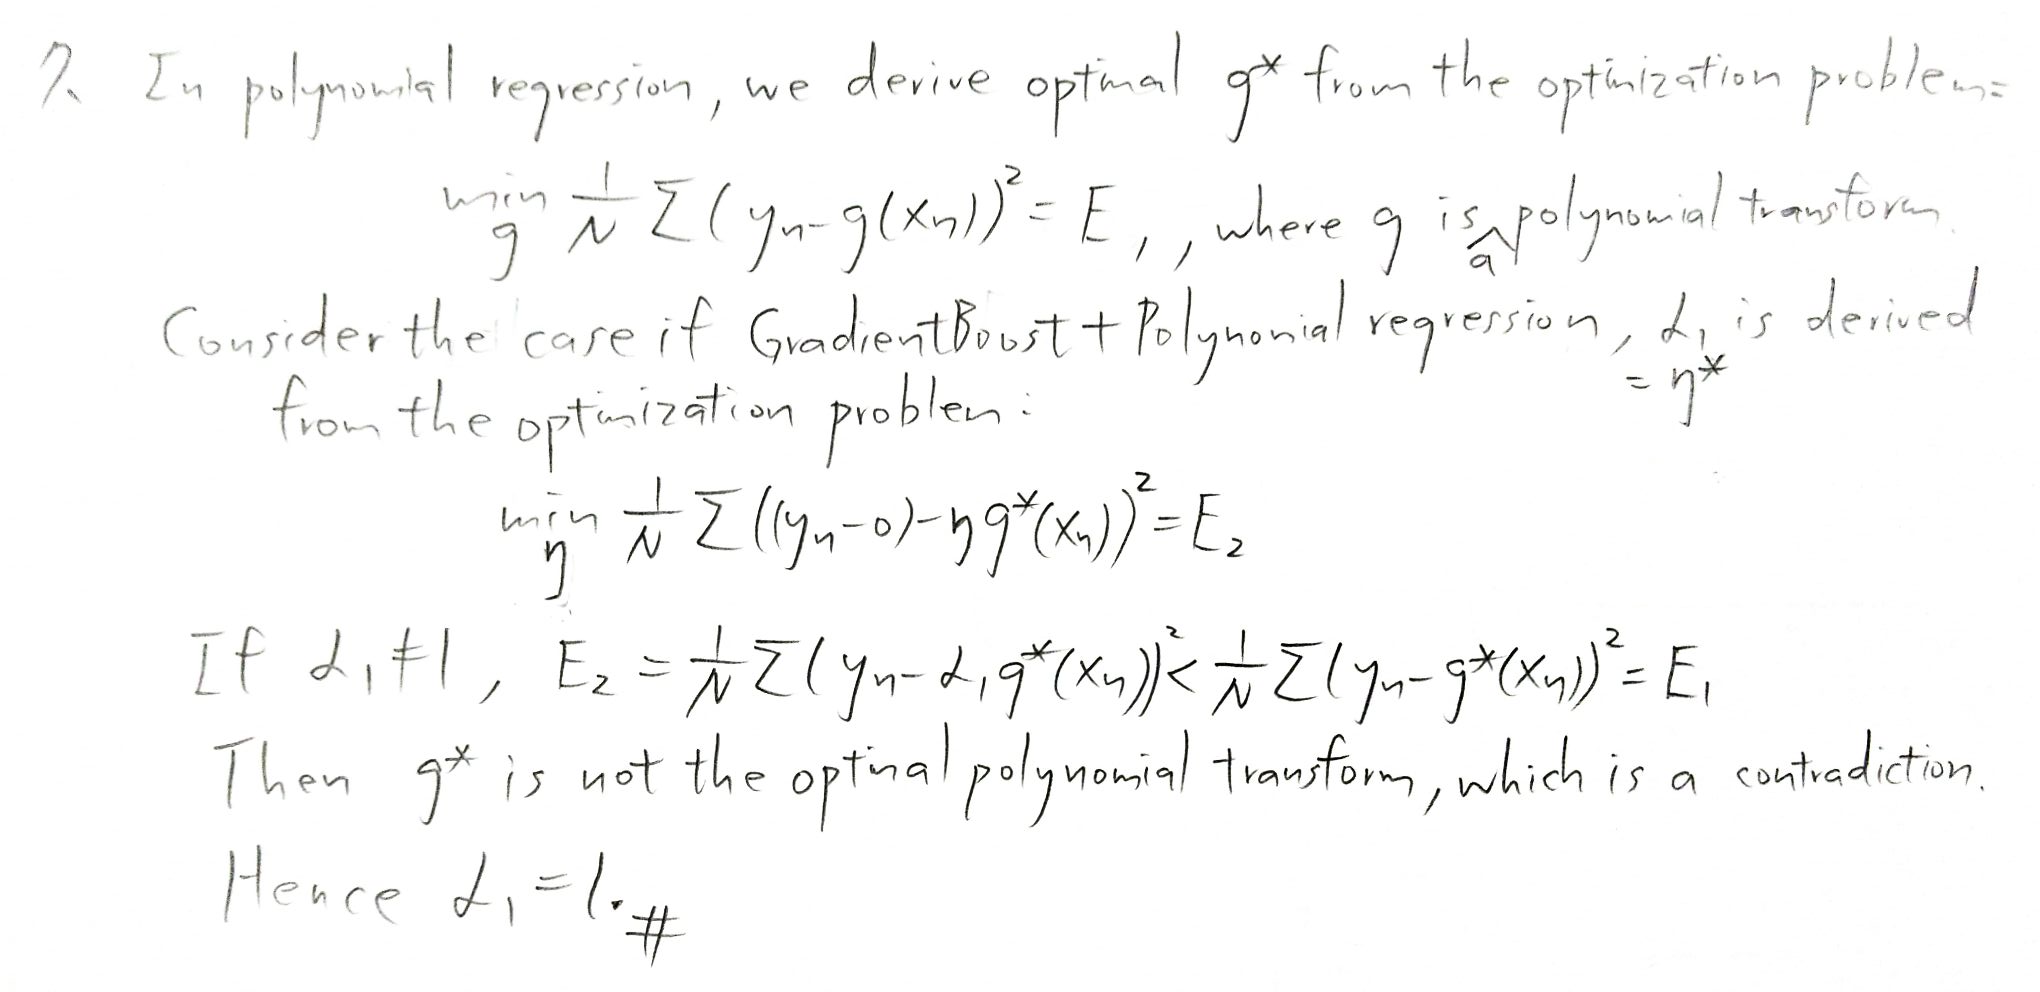 7. In polynomial regression, we derive optimal g* from the optimization problem:
min_g 1/N Σ(yn-g(xn))² = E₁, where g is a polynomial transform.
Consider the case if GradientBoost + Polynomial regression, α₁ = η* is derived
from the optimization problem:
min_η 1/N Σ((yn-0)-ηg*(xn))² = E₂
If α₁≠1, E₂ = 1/N Σ(yn-α₁g*(xn))² < 1/N Σ(yn-g*(xn))² = E₁
Then g* is not the optimal polynomial transform, which is a contradiction.
Hence α₁=1. #